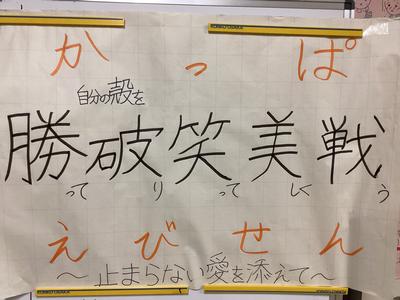 かっぱ
自分の殻を
勝破笑美戦
ってりってしくう
えびせん
～止まらない愛を添えて～